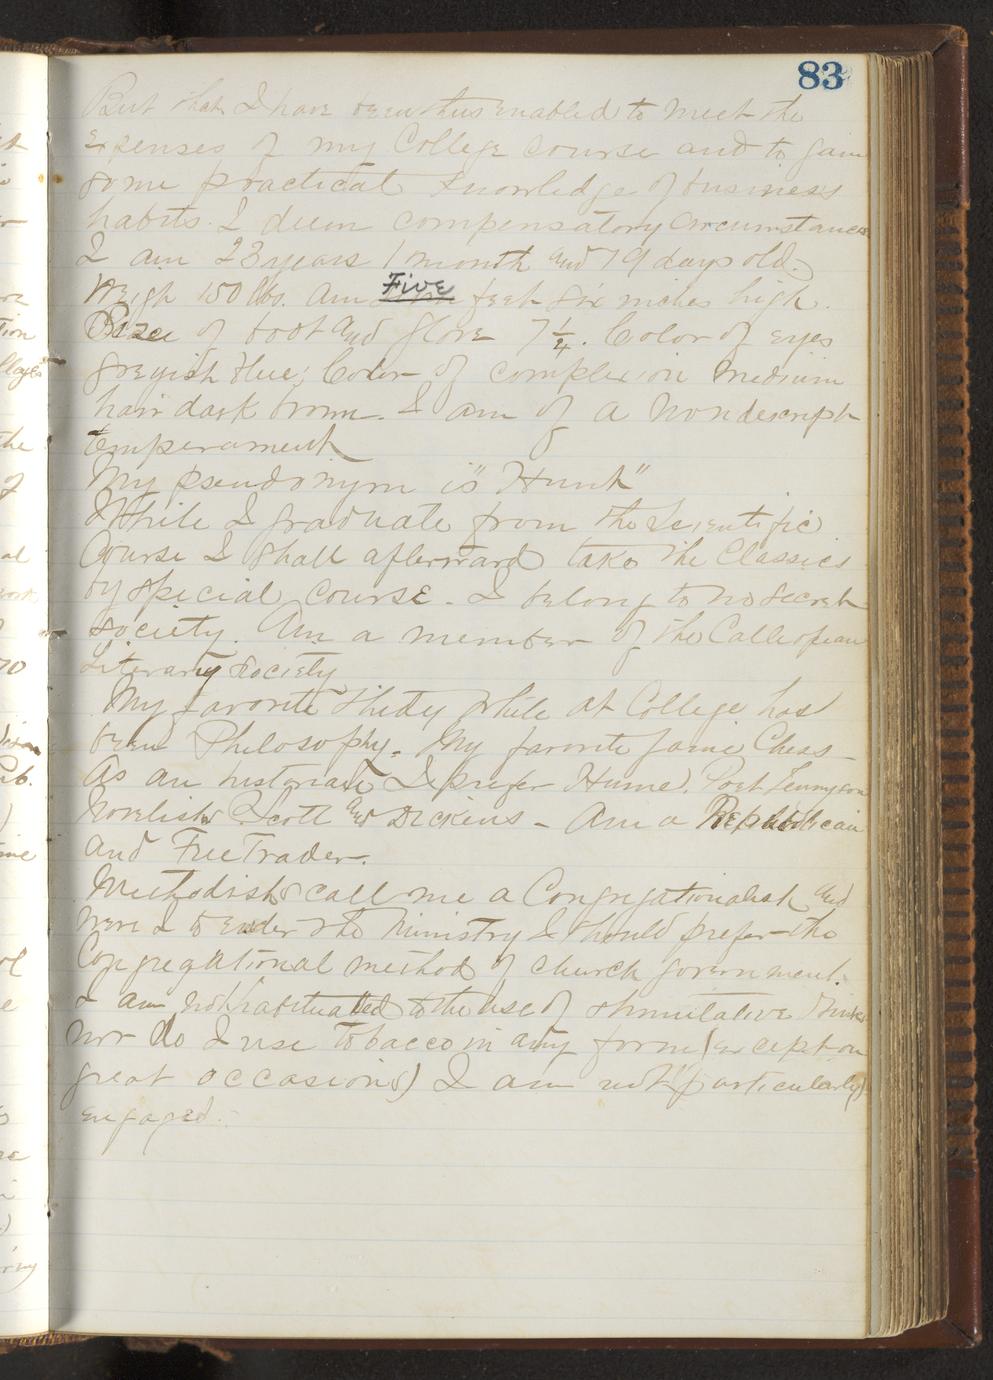 83
But that I have been thus enabled to meet the
expenses of my College course and to gain
some practical knowledge of business
habits I deem compensatory circumstances
I am 23 years 1 month and 19 days old.
Weigh 150 lbs. Am Five feet six inches high.
Size of boot and glove 7 1/4. Color of eyes
greyish blue; Color of complexion medium
hair dark brown. I am of a nondescript
temperament
My pseudonym is "Hunk"
While I graduate from the Scientific
Course I shall afterward take the Classics
by special course. I belong to no secret
society. Am a member of the Calliopean
Literary Society
My favorite study while at College has
been Philosophy. My favorite game Chess -
As an historian I prefer Hume. Poet Tennyson
Novelists Scott and Dickens - Am a Republican
and Free Trader.
Methodists call me a Congregationalist and
were I to enter the ministry I should prefer the
Congregational method of church government.
I am not habituated to the use of stimulative drinks
nor do I use tobacco in any form (except on
great occasions) I am not "particularly
engaged.